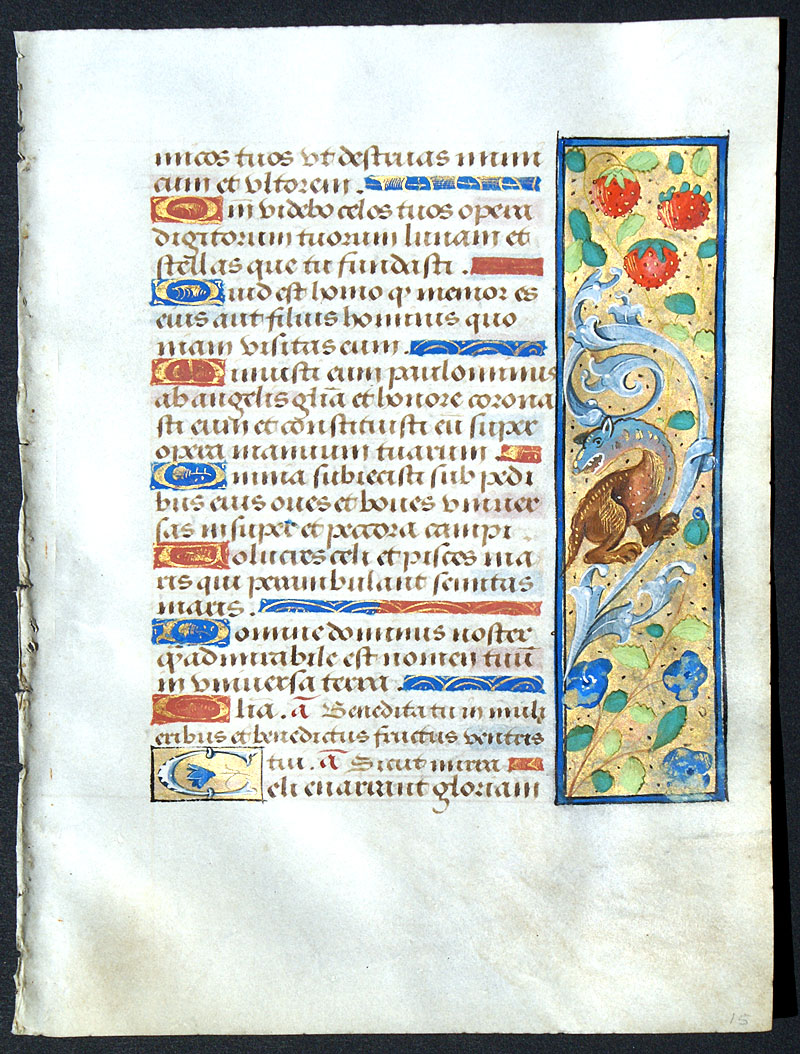 micos tuos vt destruas inimi
cum et vltorem .
Qm̄ videbo celos tuos opera
digitorum tuorum lunam et
stellas que tu fundasti .
Quid est homo qͥ memor es
eius aut filius hominis quo
niam visitas eum .
Minuisti eum paulominus
ab angelis glīa et honore corona
sti eum et constituisti eū super
opera manuum tuarum .
Omnia subiecisti sub pedi
bus eius oues et boues vniuer
sas insuper et peccora campi
Volucres celi et pisces ma
ris qui perambulant semitas
maris .
Domine dominus noster
qͣadmirabile est nomen tuū
in vniuersa terra .
Glia . a͞ Beneditatu in muli
eribus et benedictus fructus ventris
tui . a͞ Sicut mirra
Celi enarrant gloriam
15